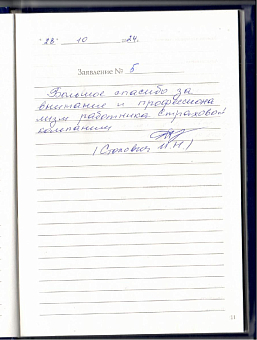 "28" 10 2024.
Заявление № 5
Большое спасибо за
внимание и профессиона
лизм работника страховой
компании
(Стахович И.Н.)
11